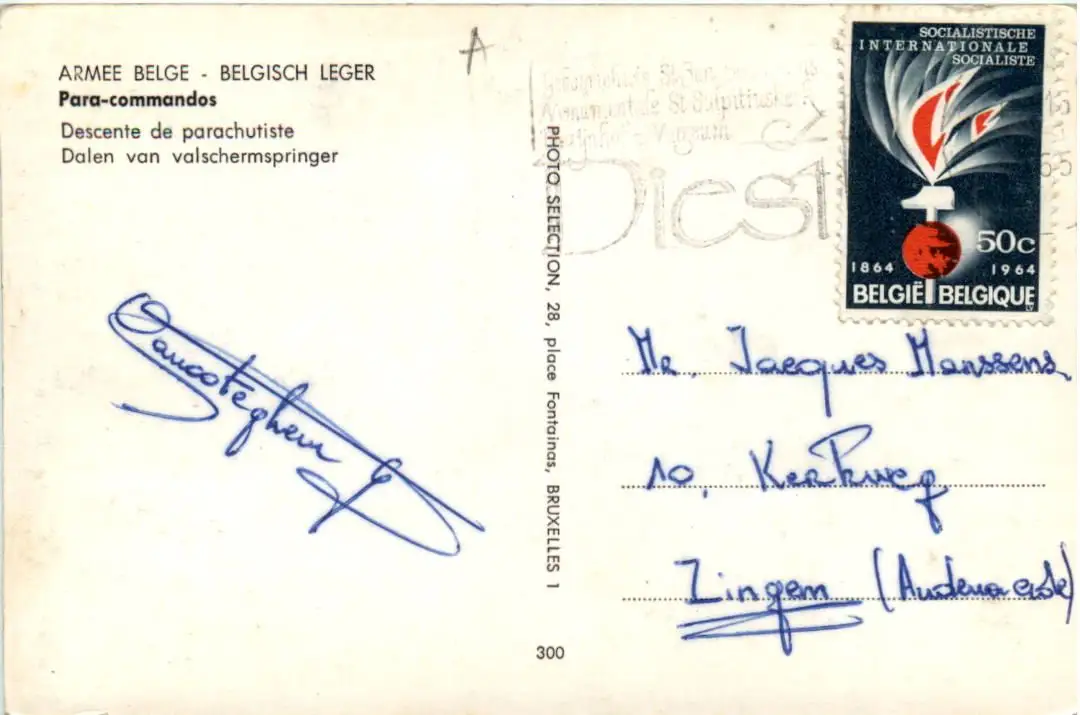 ARMEE BELGE - BELGISCH LEGER
Para-commandos
Descente de parachutiste
Dalen van valschermspringer
A
Monumentale St Sulpitiuskerk
Begijnhof - Museum
Diest
SOCIALISTISCHE
INTERNATIONALE
SOCIALISTE
50c
1864 1964
BELGIË BELGIQUE
PHOTO SELECTION, 28, place Fontainas, BRUXELLES 1
300
Mr. Jacques Manssens
10, Kerkweg
Zingem (Audenaerde)